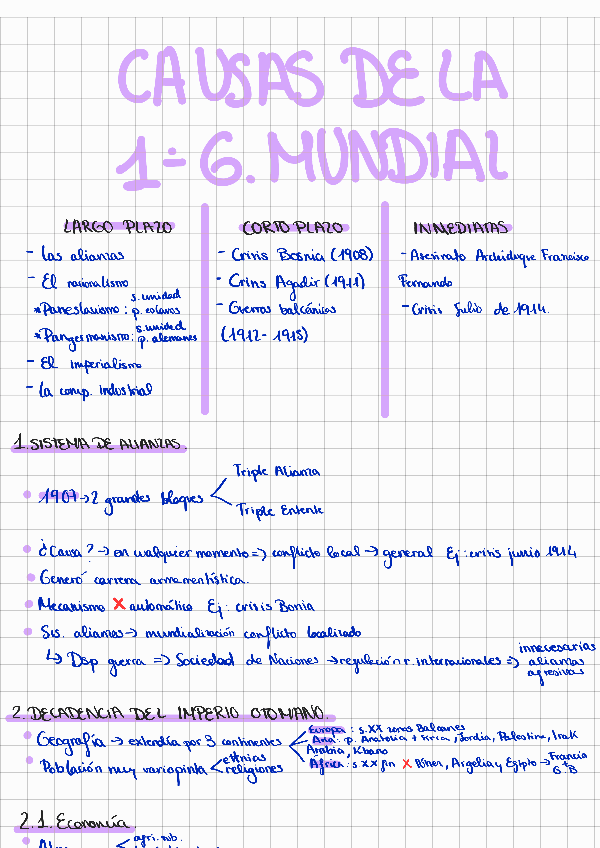 CAUSAS DE LA
1ª G. MUNDIAL
LARGO PLAZO
- Las alianzas
- El nacionalismo
s. unidad
*Paneslavismo: p. eslavos
s. unidad
*Pangermanismo: p. alemanes
- El imperialismo
- La comp. industrial
CORTO PLAZO
- Crisis Bosnia (1908)
- Crisis Agadir (1911)
- Guerras balcánicas
(1912-1913)
INNEDIATAS
- Asesinato Archiduque Francisco
Fernando
- Crisis Julio de 1914.
1. SISTEMA DE ALIANZAS.
Triple Alianza
1907 → 2 grandes bloques
Triple Entente
¿Causa? → en cualquier momento => conflicto local → general Ej: crisis junio 1914
Generó carrera armamentística.
Mecanismo X automático Ej: crisis Bonia
Sis. alianzas → mundialización conflicto localizado
innecesarias
↳ Dsp guerra => Sociedad de Naciones → regulación r. internacionales => alianzas
agresivas
2. DECADENCIA DEL IMPERIO OTOMANO.
Europa: s.XX zonas Balcanes
Geografía → extendía por 3 continentes
Asia: p. Anatolia + Siria, Jordia, Palestina, Irak
Arabia, Kbano
etnias
Población muy variopinta
religiones
África: s XX fin X Túnez, Argelia y Egipto → Francia
G + B
2.1. Economía.
agri. sub.